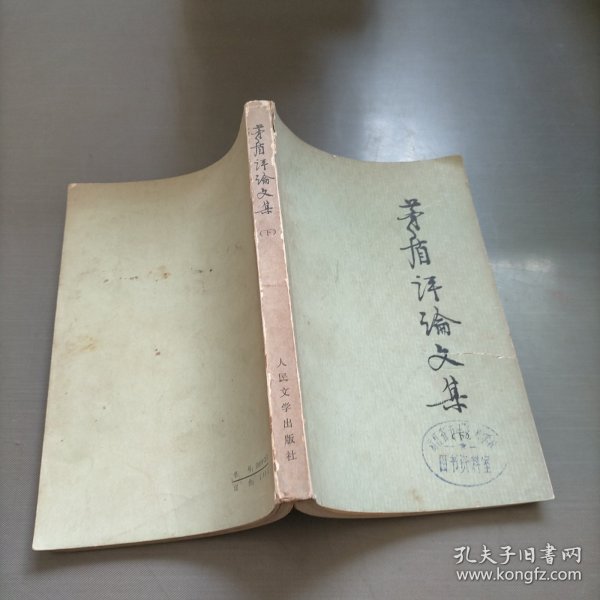 茅盾评论文集
(下)
人民文学出版社
茅盾评论文集
图书资料室
孔夫子旧书网
www.kongfz.com